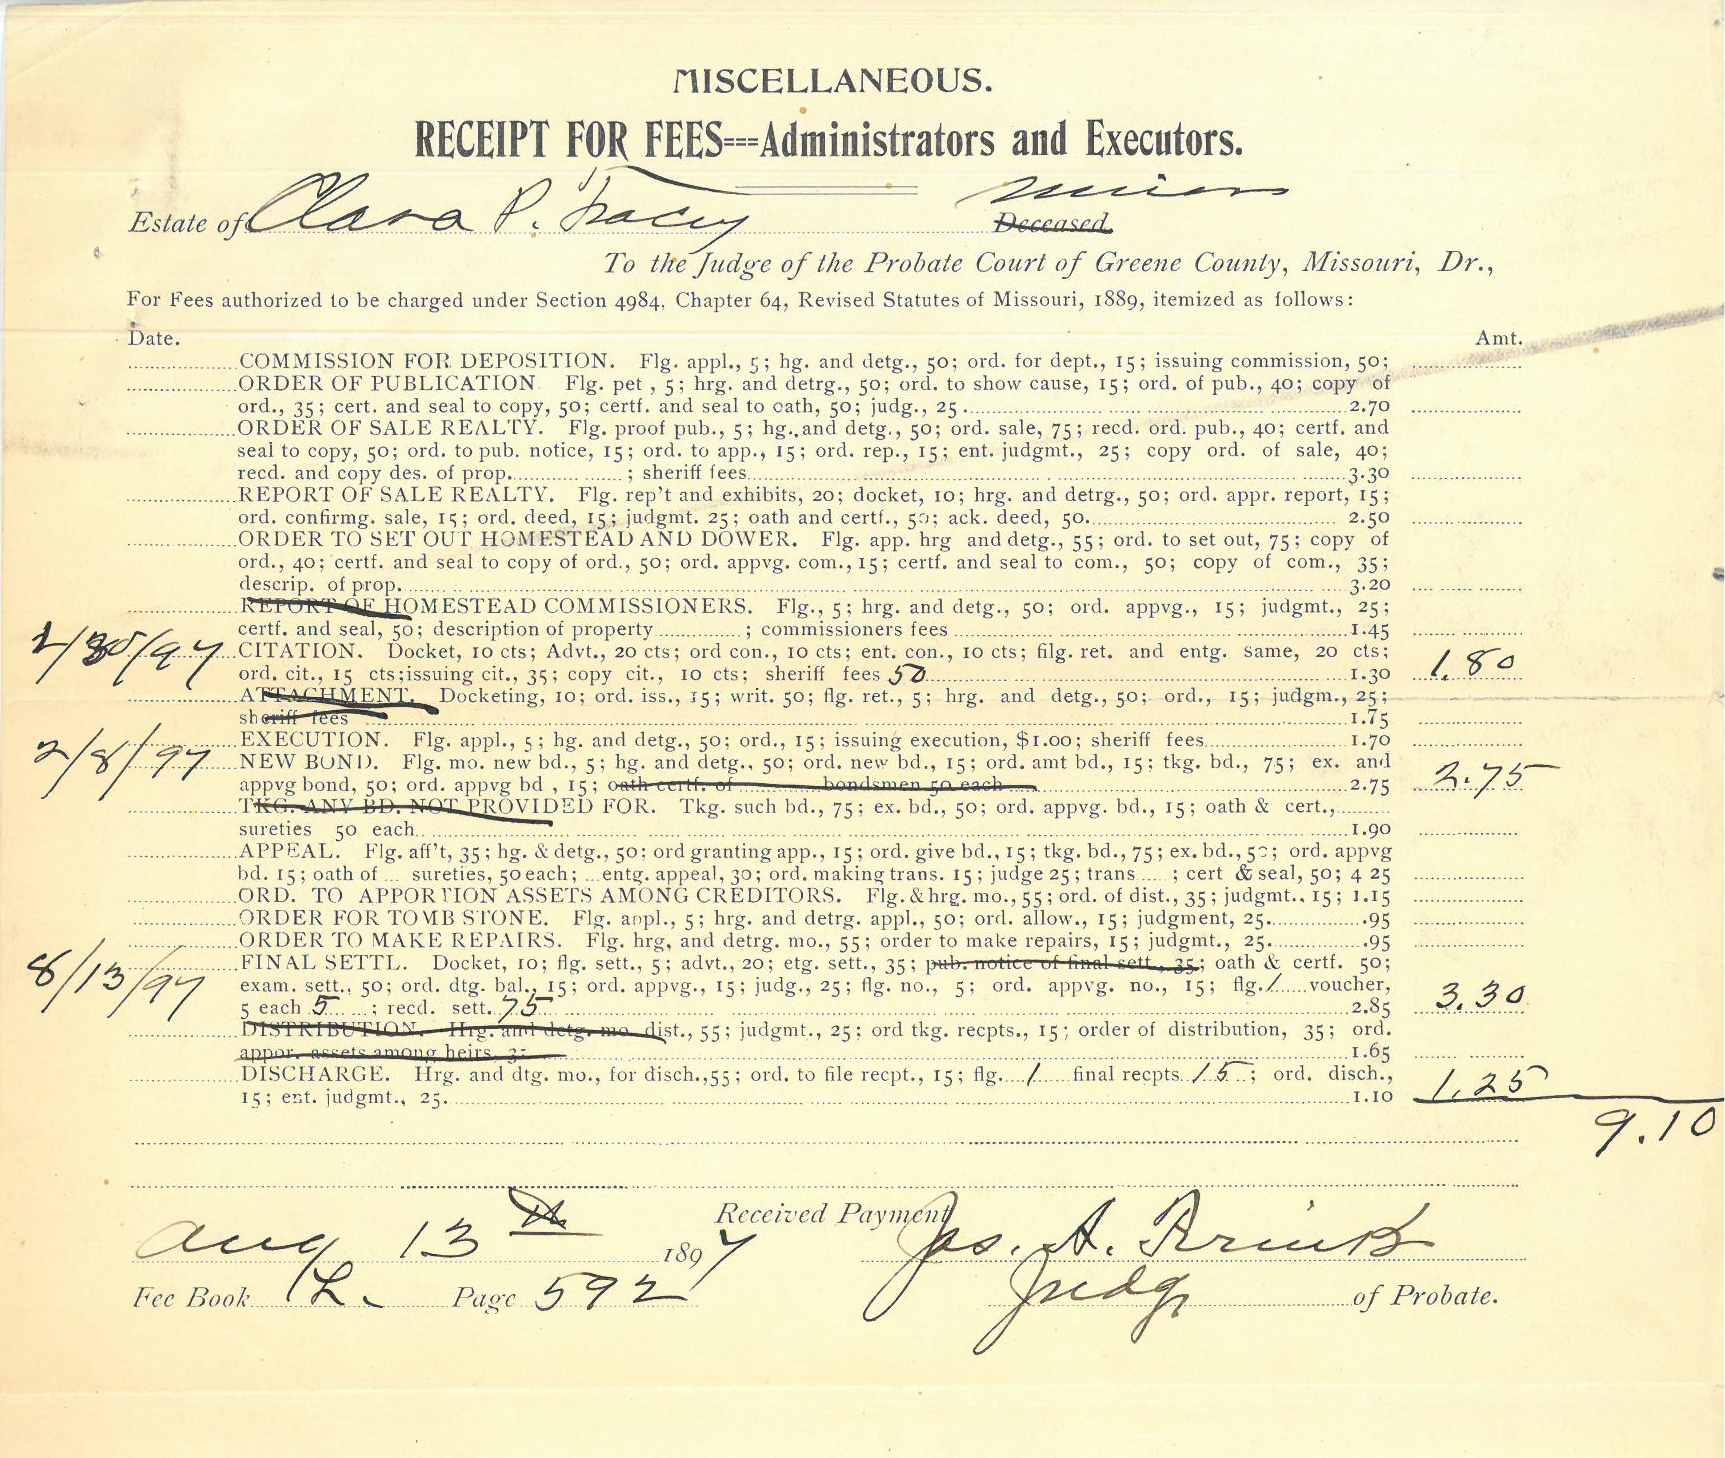 MISCELLANEOUS.
RECEIPT FOR FEES===Administrators and Executors.
Estate of Clara P. Tracy Minor Deceased.
To the Judge of the Probate Court of Greene County, Missouri, Dr.,
For Fees authorized to be charged under Section 4984, Chapter 64, Revised Statutes of Missouri, 1889, itemized as follows:
Date. Amt.
COMMISSION FOR DEPOSITION. Flg. appl., 5; hg. and detg., 50; ord. for dept., 15; issuing commission, 50;
ORDER OF PUBLICATION. Flg. pet, 5; hrg. and detrg., 50; ord. to show cause, 15; ord. of pub., 40; copy of
ord., 35; cert. and seal to copy, 50; certf. and seal to oath, 50; judg., 25 2.70
ORDER OF SALE REALTY. Flg. proof pub., 5; hg., and detg., 50; ord. sale, 75; recd. ord. pub., 40; certf. and
seal to copy, 50; ord. to pub. notice, 15; ord. to app., 15; ord. rep., 15; ent. judgmt., 25; copy ord. of sale, 40;
recd. and copy des. of prop. ; sheriff fees 3.30
REPORT OF SALE REALTY. Flg. rep't and exhibits, 20; docket, 10; hrg. and detrg., 50; ord. appr. report, 15;
ord. confirmg. sale, 15; ord. deed, 15; judgmt. 25; oath and certf., 50; ack. deed, 50. 2.50
ORDER TO SET OUT HOMESTEAD AND DOWER. Flg. app. hrg and detg., 55; ord. to set out, 75; copy of
ord., 40; certf. and seal to copy of ord., 50; ord. appvg. com., 15; certf. and seal to com., 50; copy of com., 35;
descrip. of prop. 3.20
REPORT OF HOMESTEAD COMMISSIONERS. Flg., 5; hrg. and detg., 50; ord. appvg., 15; judgmt., 25;
certf. and seal, 50; description of property ; commissioners fees 1.45
/97 CITATION. Docket, 10 cts; Advt., 20 cts; ord con., 10 cts; ent. con., 10 cts; filg. ret. and entg. same, 20 cts;
ord. cit., 15 cts; issuing cit., 35; copy cit., 10 cts; sheriff fees 50 1.30 1.80
ATTACHMENT. Docketing, 10; ord. iss., 15; writ. 50; flg. ret., 5; hrg. and detg., 50; ord., 15; judgm., 25;
sheriff fees 1.75
EXECUTION. Flg. appl., 5; hg. and detg., 50; ord., 15; issuing execution, $1.00; sheriff fees 1.70
2/8/97 NEW BOND. Flg. mo. new bd., 5; hg. and detg., 50; ord. new bd., 15; ord. amt bd., 15; tkg. bd., 75; ex. and
appvg bond, 50; ord. appvg bd, 15; oath certf. of bondsmen 50 each 2.75 2.75
TKG. ANY BD. NOT PROVIDED FOR. Tkg. such bd., 75; ex. bd., 50; ord. appvg. bd., 15; oath & cert.,
sureties 50 each 1.90
APPEAL. Flg. aff't, 35; hg. & detg., 50; ord granting app., 15; ord. give bd., 15; tkg. bd., 75; ex. bd., 50; ord. appvg
bd. 15; oath of ... sureties, 50 each; ... entg. appeal, 30; ord. making trans. 15; judge 25; trans ; cert & seal, 50; 4 25
ORD. TO APPORTION ASSETS AMONG CREDITORS. Flg. & hrg. mo., 55; ord. of dist., 35; judgmt., 15; 1.15
ORDER FOR TOMB STONE. Flg. appl., 5; hrg. and detrg. appl., 50; ord. allow., 15; judgment, 25. .95
ORDER TO MAKE REPAIRS. Flg. hrg, and detrg. mo., 55; order to make repairs, 15; judgmt., 25. .95
8/13/97 FINAL SETTL. Docket, 10; flg. sett., 5; advt., 20; etg. sett., 35; pub. notice of final sett., 35; oath & certf. 50;
exam. sett., 50; ord. dtg. bal., 15; ord. appvg., 15; judg., 25; flg. no., 5; ord. appvg. no., 15; flg. 1 voucher,
5 each 5 ; recd. sett. 75 2.85 3.30
DISTRIBUTION. Hrg. and detg. mo. dist., 55; judgmt., 25; ord tkg. recpts., 15; order of distribution, 35; ord.
appor. assets among heirs, 35 1.65
DISCHARGE. Hrg. and dtg. mo., for disch., 55; ord. to file recpt., 15; flg. 1 final recpts 15; ord. disch.,
15; ent. judgmt., 25. 1.10 1.25
9.10
Received Payment
Aug 13th 1897 Jas. A.
Fee Book L. Page 592 Judge of Probate.